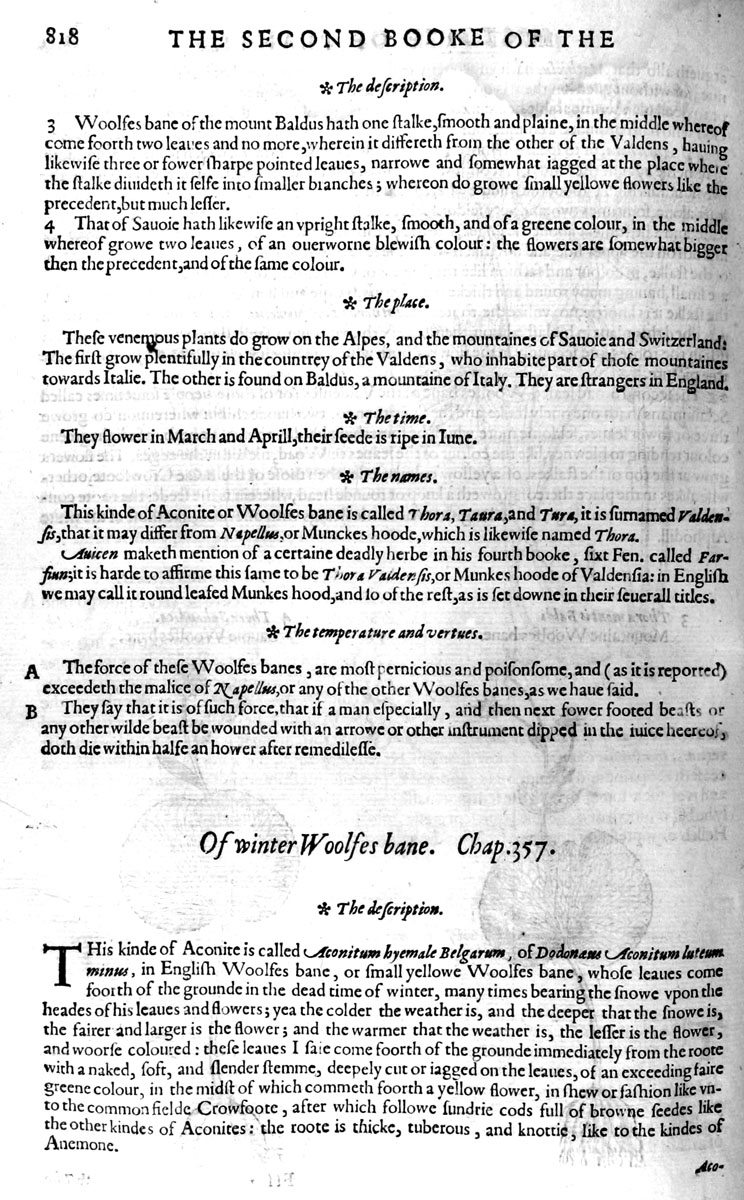 818 THE SECOND BOOKE OF THE
✻ The deſcription.
3 Woolfes bane of the mount Baldus hath one ſtalke,ſmooth and plaine, in the middle whereof
come foorth two leaues and no more,wherein it differeth from the other of the Valdens, hauing
likewiſe three or fower ſharpe pointed leaues, narrowe and ſomewhat iagged at the place where
the ſtalke diuideth it ſelfe into ſmaller branches; whereon do growe ſmall yellowe flowers like the
precedent,but much leſſer.
4 That of Sauoie hath likewiſe an vpright ſtalke, ſmooth, and of a greene colour, in the middle
whereof growe two leaues, of an ouerworne blewiſh colour: the flowers are ſomewhat bigger
then the precedent,and of the ſame colour.
✻ The place.
Theſe venemous plants do grow on the Alpes, and the mountaines of Sauoie and Switzerland:
The firſt grow plentifully in the countrey of the Valdens, who inhabite part of thoſe mountaines
towards Italie. The other is found on Baldus, a mountaine of Italy. They are ſtrangers in England.
✻ The time.
They flower in March and Aprill,their ſeede is ripe in Iune.
✻ The names.
This kinde of Aconite or Woolfes bane is called Thora, Taura,and Tura, it is ſurnamed Valden-
ſis,that it may differ from Napellus,or Munckes hoode,which is likewiſe named Thora.
Auicen maketh mention of a certaine deadly herbe in his fourth booke, ſixt Fen. called Far-
ſiun;it is harde to affirme this ſame to be Thora Valdenſis,or Munkes hoode of Valdenſia: in Engliſh
we may call it round leafed Munkes hood,and ſo of the reſt,as is ſet downe in their ſeuerall titles.
✻ The temperature and vertues.
A The force of theſe Woolfes banes, are moſt pernicious and poiſonſome, and (as it is reported)
exceedeth the malice of Napellus,or any of the other Woolfes banes,as we haue ſaid.
B They ſay that it is of ſuch force,that if a man eſpecially, and then next fower footed beaſts or
any other wilde beaſt be wounded with an arrowe or other inſtrument dipped in the iuice heereof,
doth die within halfe an hower after remedileſſe.
Of winter Woolfes bane. Chap.357.
✻ The deſcription.
THis kinde of Aconite is called Aconitum hyemale Belgarum, of Dodonæus Aconitum luteum
minus, in Engliſh Woolfes bane, or ſmall yellowe Woolfes bane, whoſe leaues come
foorth of the grounde in the dead time of winter, many times bearing the ſnowe vpon the
heades of his leaues and flowers; yea the colder the weather is, and the deeper that the ſnowe is,
the fairer and larger is the flower; and the warmer that the weather is, the leſſer is the flower,
and woorſe coloured: theſe leaues I ſaie come foorth of the grounde immediately from the roote
with a naked, ſoft, and ſlender ſtemme, deepely cut or iagged on the leaues, of an exceeding faire
greene colour, in the midſt of which commeth foorth a yellow flower, in ſhew or faſhion like vn-
to the common fielde Crowfoote, after which followe ſundrie cods full of browne ſeedes like
the other kindes of Aconites: the roote is thicke, tuberous, and knottie, like to the kindes of
Anemone.
Aco-